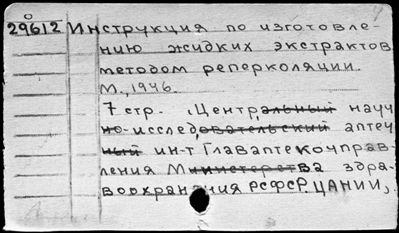 29612 Инструкция по изготовле-
нию жидких экстрактов
методом реперколяции.
М., 1946.
7 стр. (Центральный науч
но-исследовательский аптеч
ный ин-т Главаптекоуправ-
ления Министерства здра-
воохранения РСФСР. ЦАНИИ).